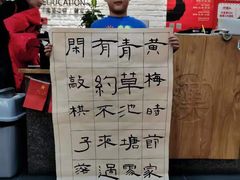 EDUCATION
黃梅時節家
青草池塘處
有約不來過
閑敲棋子落